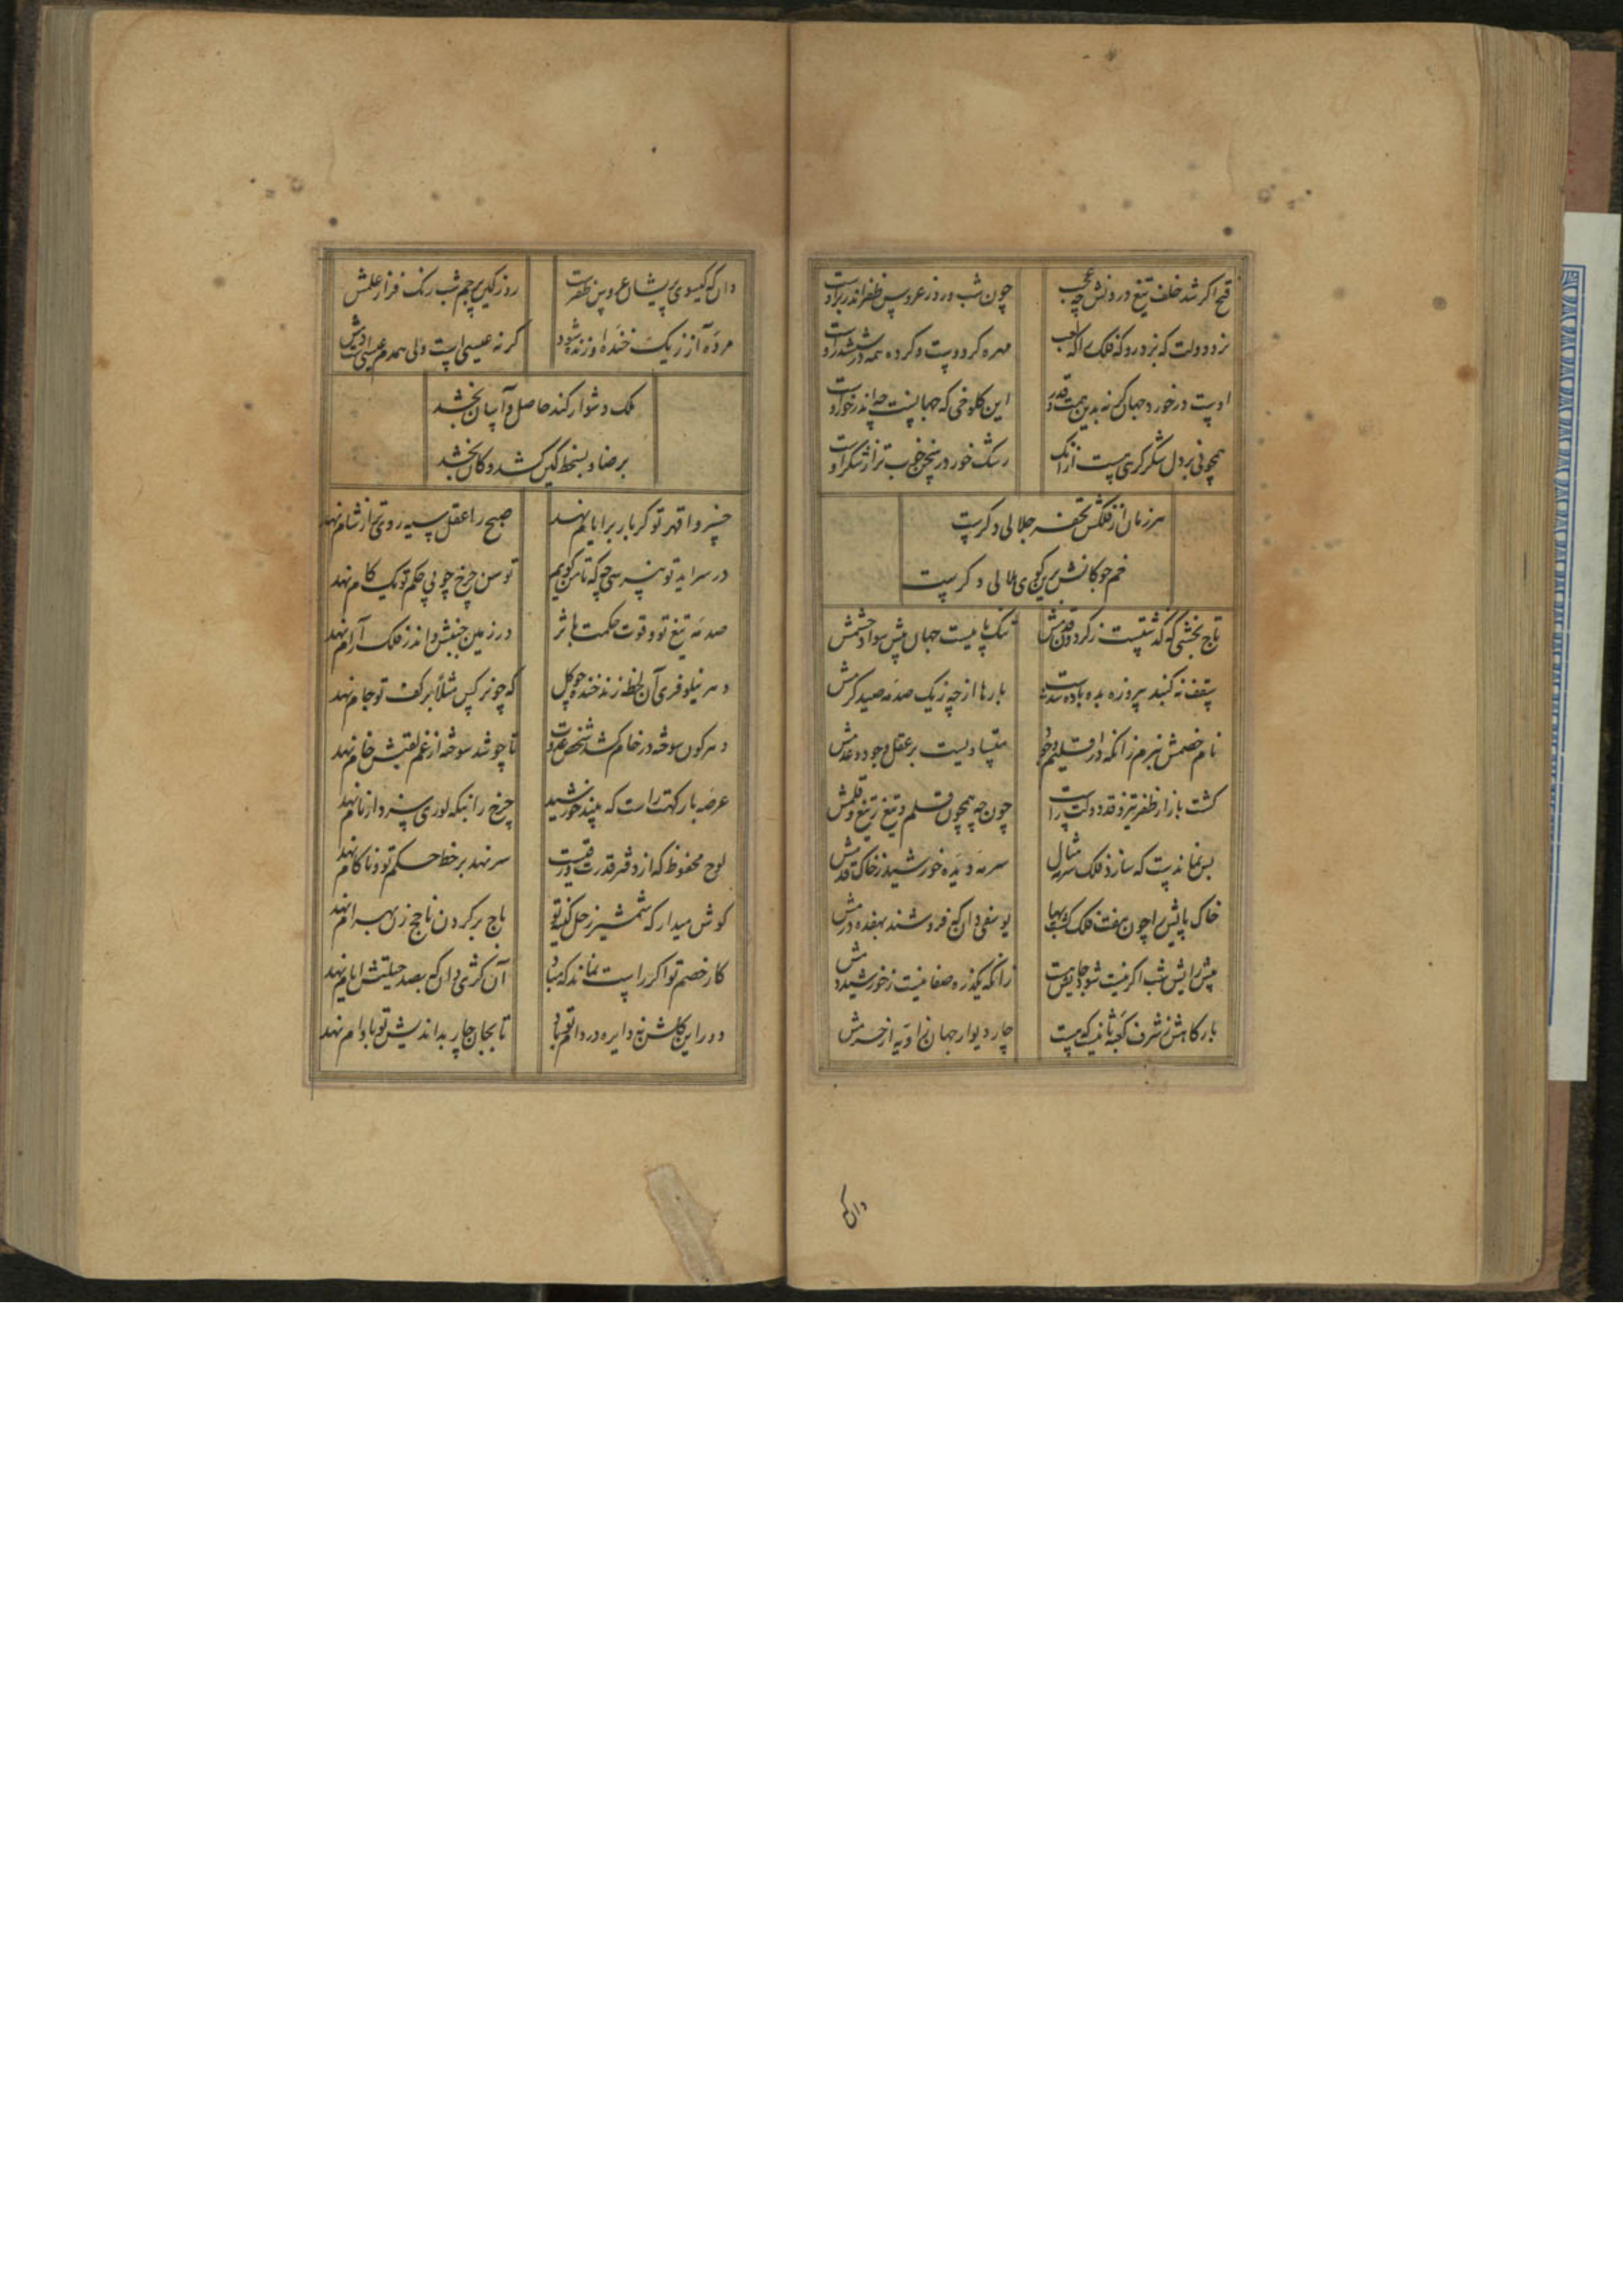 فتح اگر شد خلف تیغ در وزلش چه عجب چون شب و روز عروس ظفر اندر بر اوست
نرد دولت که برد رو که فلک را که لعب مهره کرد اوست و کرده همه در ششدر اوست
اوست در خورد جهان کرنه بدین همت و قدر این کلوخی که جهانست چه اندر خور اوست
همچو نی بر دل شکر کرهی هست از آنک رشک خور در سخن خوب‌تر از شکر اوست
هر زمان از فلکش تحفه جلالی دگرست
خم چوکانش برین کوی هلالی دگرست
تاج بخشی که گذشتست ز گردون قدمش تنگ پاییست جهان پیش سواد حشمش
سقف نه گنبد پیروزه بده باده شدست بارها از چه ز یک صدمه صید کرمش
نام خصمش نبرم زانکه در اقلیم وجود متساویست بر عقل وجود و عدمش
گشت بازار ظفر تیز و قد دولت راست چون چه همچون قلم و تیغ ز تیغ و قلمش
بس نماندست که سازد فلک سرمه مثال سرمه دیده خورشید ز خاک قدمش
خاک پایش را چون هفت فلک گشت بها یوسفی دان که فروشند بهفده درمش
پیش رایش شب اگر نیست شود جایش هست زانکه یکذره صفا نیست ز خورشید دمش
بارگاهش ز شرف کعبه ثانیست که هست چار دیوار جهان زاویه از حرمش
وان که
وان که گیسوی پریشان عروس ظفرست روز کین پرچم شب رنگ فراز علمش
مرده آز ز یک خنده او زنده شود گرنه عیسی است ولی همدم عیسی است دمش
ملک دشوار کند حاصل و آسان بخشد
برضا و بسخط کین کشد و کان بخشد
خسروا قهر تو گر بار بر ایام نهد صبح را عقل سیه روی‌تر از شام نهد
در سراید تو هنر سی چو که تا من گویم توسن چرخ چو پی حکم تو یک گام نهد
صدمه تیغ تو و قوت حکمت باثر در زمین جنبش و اندر فلک آرام نهد
دهر نیلوفری آن لحظه زند خنده چو گل که چو نرگس مثلا بر کف تو جام نهد
دهر کون سوخته در خام کشد شخص عدوت تا چو شد سوخته از غم لقبش خام نهد
عرصه بارگهت راست که بیند خورشید چرخ را نیکه لوری سزد ار نام نهد
لوح محفوظ که از دفتر قدرت ورقیست سر نهد بر خط حکم تو و ناکام نهد
گوش میدار که شمشیر زحل کینه تو باج بر گردن ناجخ زن بهرام نهد
کار خصم تو اگر راست نماند که مباد آن کژی دان که بصد حیلتش ایام نهد
دور این گلشن نه دایره در دام تو باد تا بجان چار بد اندیش تو با وام نهد